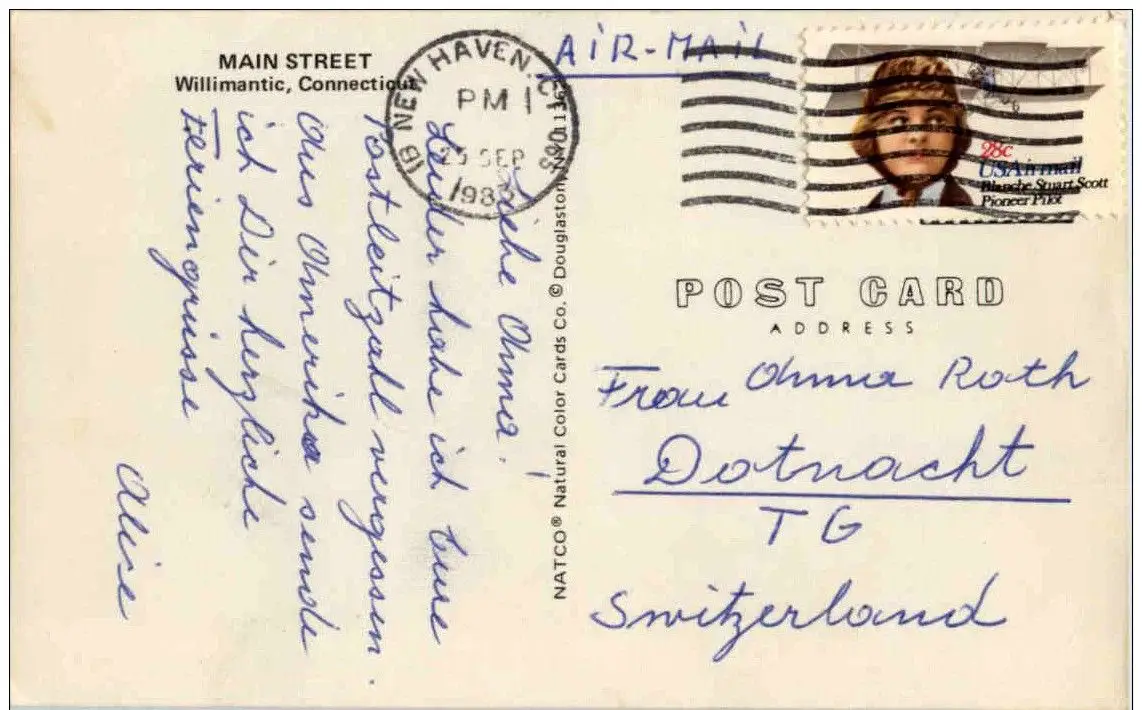 MAIN STREET
Willimantic, Connecticut
NEW HAVEN, CT
PM
25 SEP
1983
AIR-MAIL
28c
USAirmail
Blanche Stuart Scott
Pioneer Pilot
Liebe Omma!
Leider habe ich Eure
Postleitzahl vergessen.
Aus Amerika sende
ich Dir herzliche
Feriengrüsse
Alice
NATCO® Natural Color Cards Co. © Douglaston, N.Y. 11363
POST CARD
ADDRESS
Frau Omma Roth
Dotnacht
TG
Switzerland